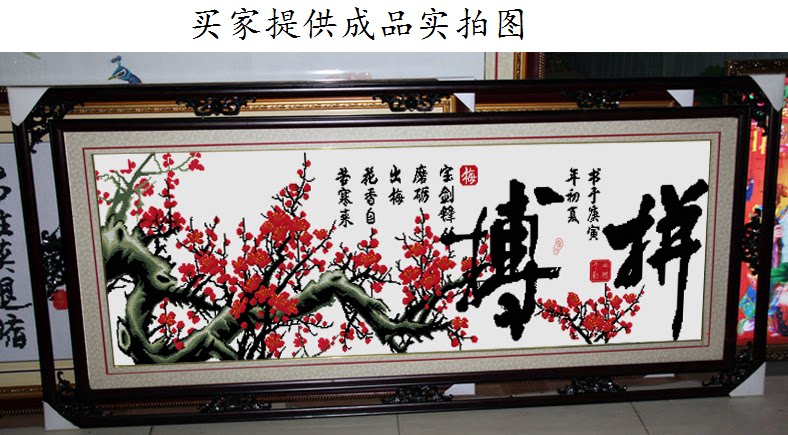 买家提供成品实拍图
拼
搏
书于庚寅
年初夏
梅
宝剑锋
磨砺
出梅
花香自
苦寒来